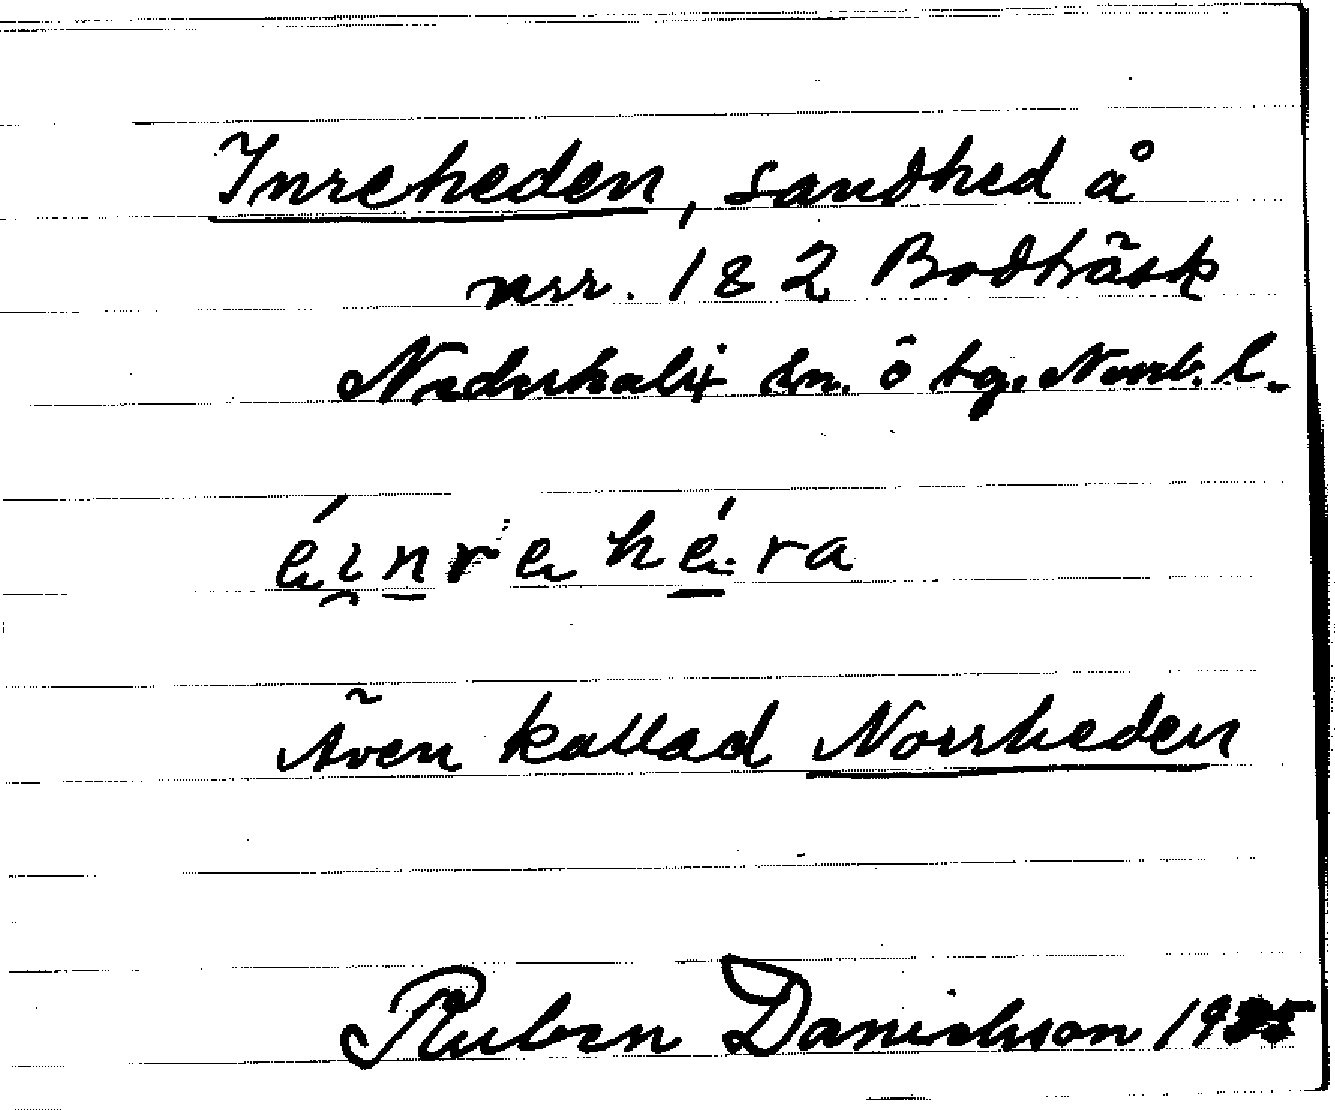 Inreheden, sandhed å
nrr. 1 & 2 Bodträsk
Nederkalix sn. ö tg. Norrb. l.
éinre hé.ra
Även kallad Norrheden
Ruben Danielsson 1935